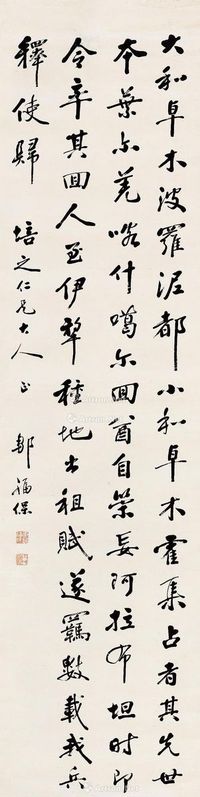 大和卓木波羅泥都小和卓木霍集占者其先世
本葉尔羌喀什噶尔回酋自策妄阿拉布坦時即
令率其回人至伊犂種地出租賦遂羈數載我兵
釋使歸
培之仁兄大人正
鄒福保